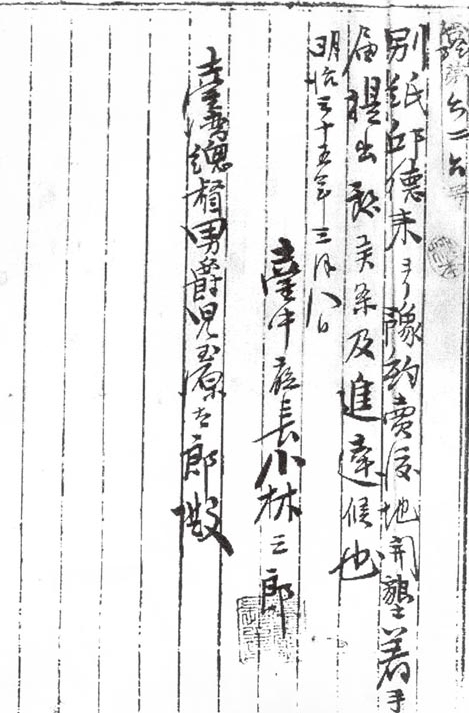 別紙邱德来ヨリ豫約賣渡地開墾着手
届提出致候ニ付及進達候也
明治三十五年三月八日
臺中廳長小林三郎
臺灣總督男爵兒玉源太郎殿